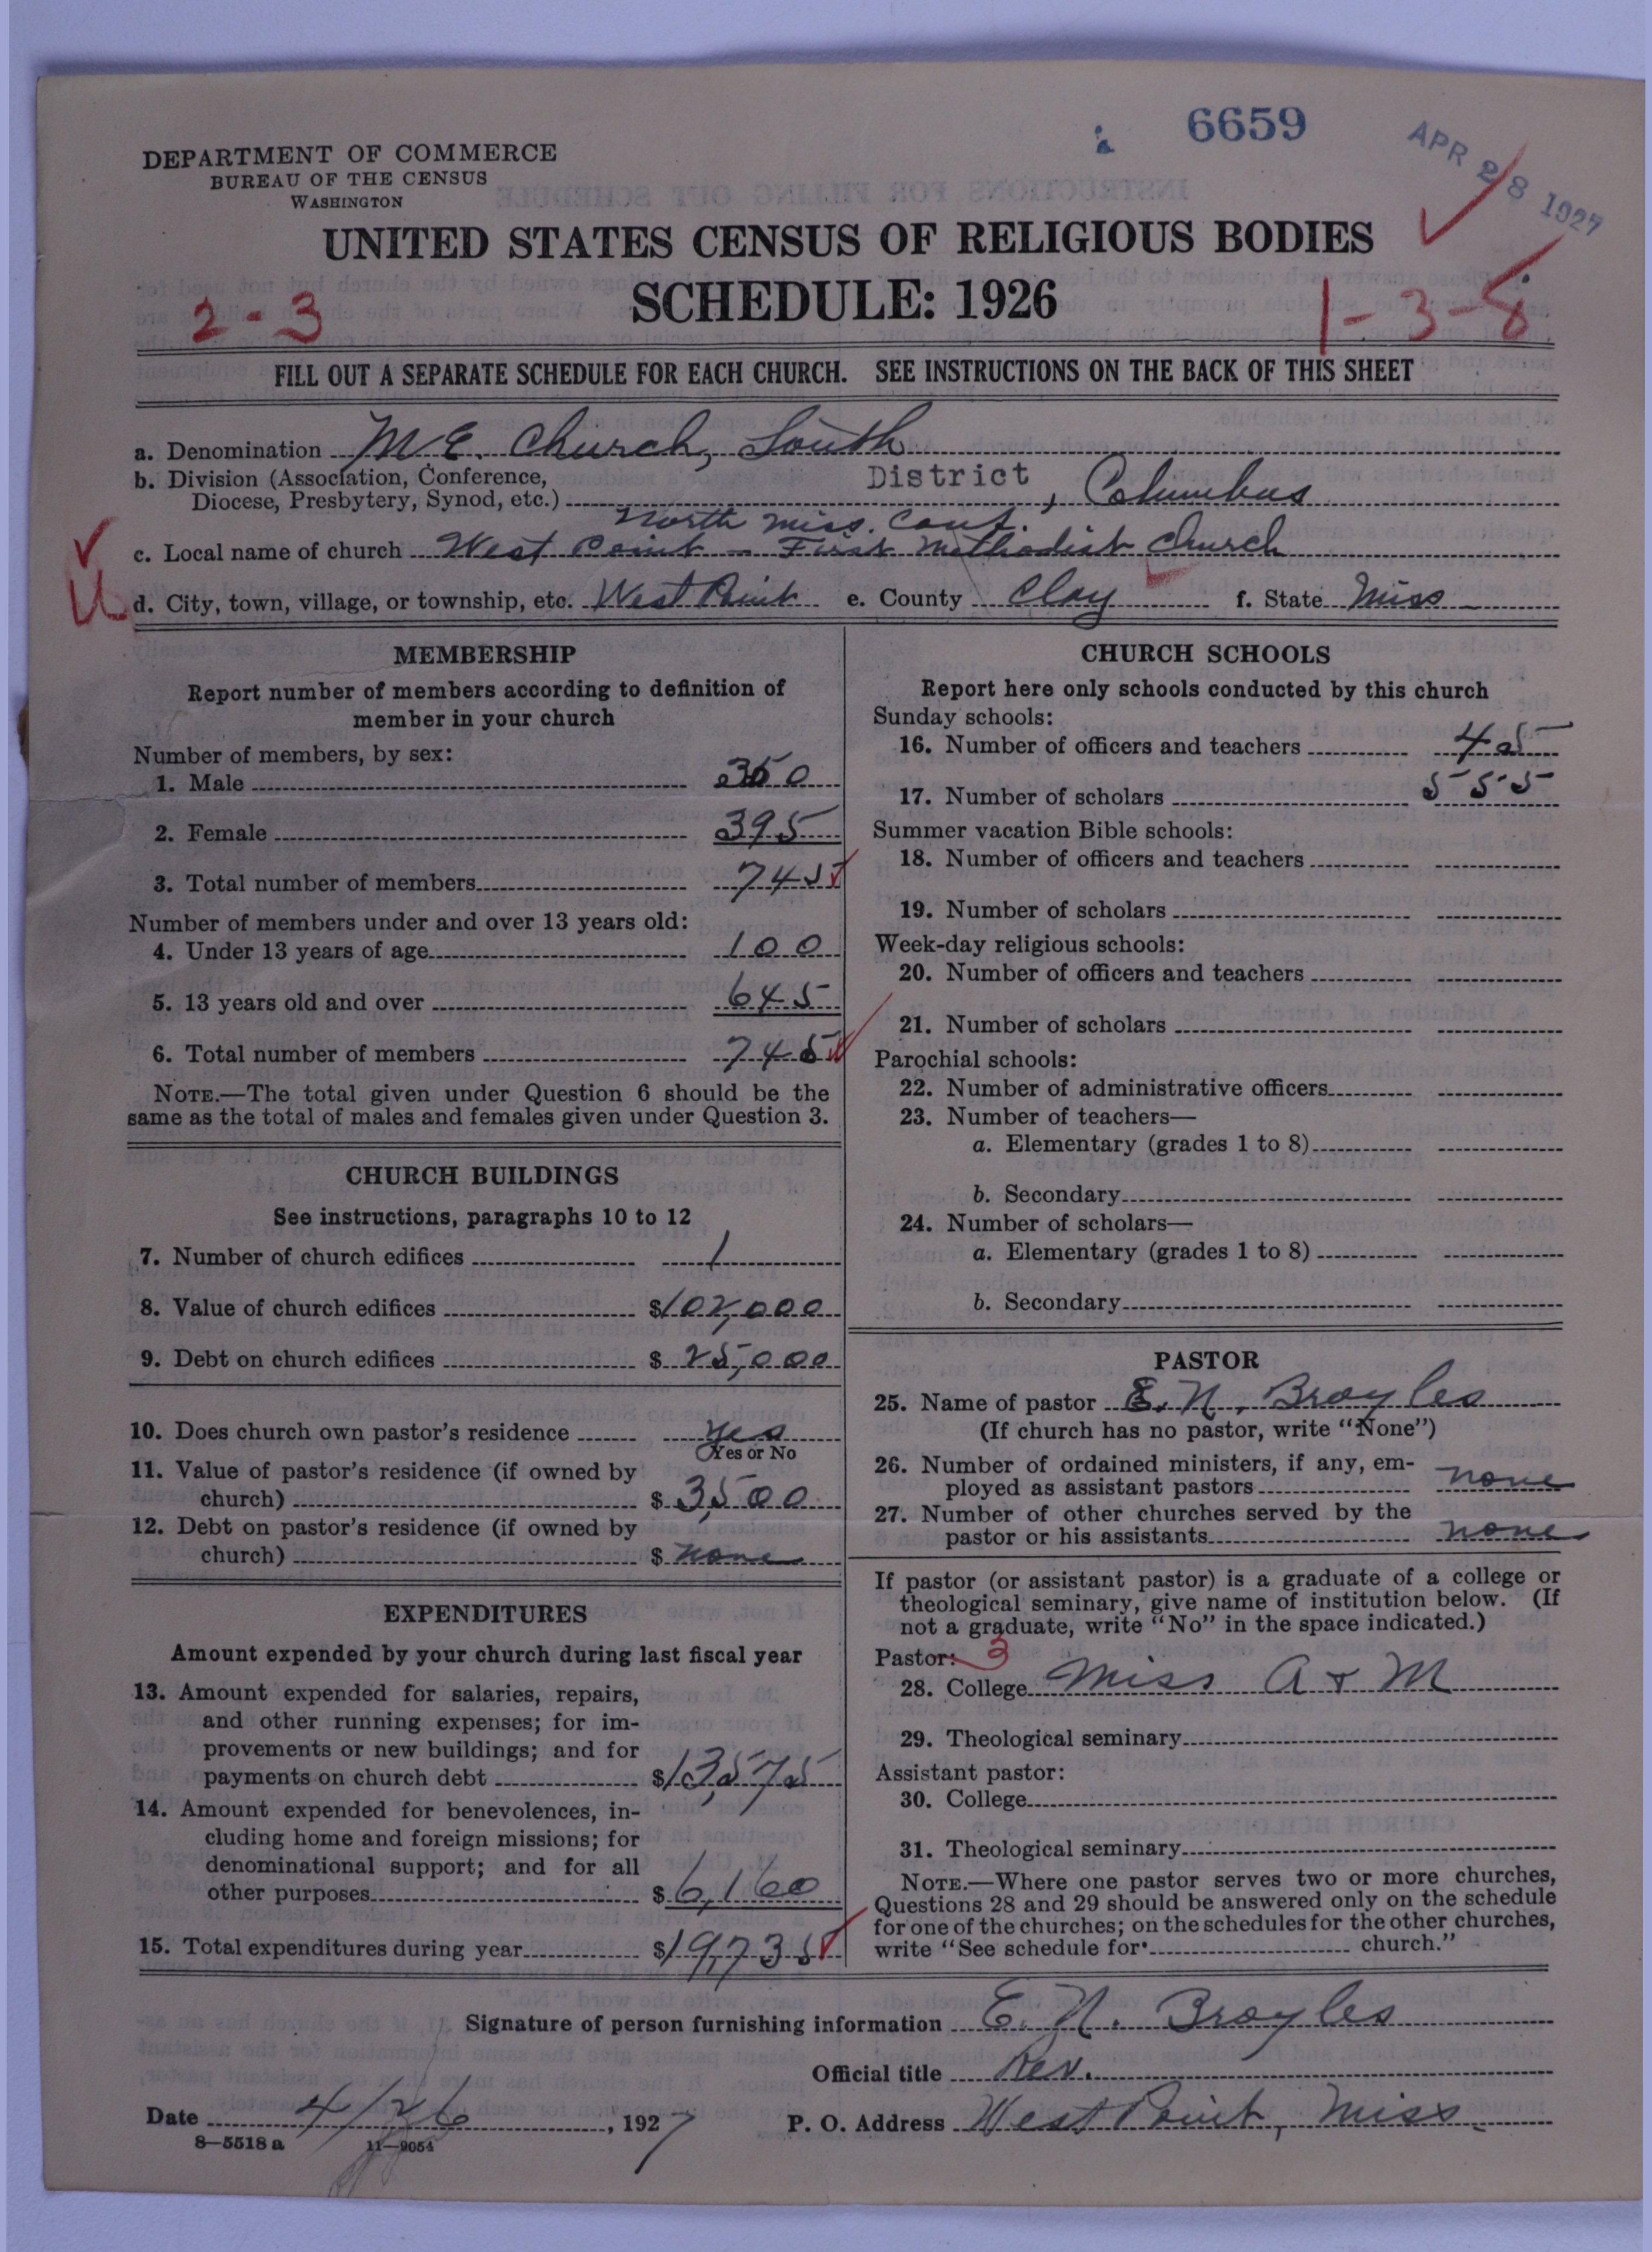 6659
APR 28 1927
DEPARTMENT OF COMMERCE
BUREAU OF THE CENSUS
WASHINGTON
UNITED STATES CENSUS OF RELIGIOUS BODIES
SCHEDULE: 1926
2-3
1-3-8
FILL OUT A SEPARATE SCHEDULE FOR EACH CHURCH. SEE INSTRUCTIONS ON THE BACK OF THIS SHEET
a. Denomination M.E. Church, South
b. Division (Association, Conference,
Diocese, Presbytery, Synod, etc.) District, Columbus
North Miss. Conf.
c. Local name of church West Point - First Methodist Church
d. City, town, village, or township, etc. West Point e. County Clay f. State Miss
MEMBERSHIP
Report number of members according to definition of
member in your church
Number of members, by sex:
1. Male 350
2. Female 395
3. Total number of members 745
Number of members under and over 13 years old:
4. Under 13 years of age 100
5. 13 years old and over 645
6. Total number of members 745
NOTE.—The total given under Question 6 should be the
same as the total of males and females given under Question 3.
CHURCH BUILDINGS
See instructions, paragraphs 10 to 12
7. Number of church edifices 1
8. Value of church edifices $102,000
9. Debt on church edifices $25,000
10. Does church own pastor's residence Yes
Yes or No
11. Value of pastor's residence (if owned by
church) $3500
12. Debt on pastor's residence (if owned by
church) $none
EXPENDITURES
Amount expended by your church during last fiscal year
13. Amount expended for salaries, repairs,
and other running expenses; for im-
provements or new buildings; and for
payments on church debt $13,575
14. Amount expended for benevolences, in-
cluding home and foreign missions; for
denominational support; and for all
other purposes $6,160
15. Total expenditures during year $19,735
CHURCH SCHOOLS
Report here only schools conducted by this church
Sunday schools:
16. Number of officers and teachers 45
17. Number of scholars 555
Summer vacation Bible schools:
18. Number of officers and teachers
19. Number of scholars
Week-day religious schools:
20. Number of officers and teachers
21. Number of scholars
Parochial schools:
22. Number of administrative officers
23. Number of teachers—
a. Elementary (grades 1 to 8)
b. Secondary
24. Number of scholars—
a. Elementary (grades 1 to 8)
b. Secondary
PASTOR
25. Name of pastor E. N. Broyles
(If church has no pastor, write "None")
26. Number of ordained ministers, if any, em-
ployed as assistant pastors none
27. Number of other churches served by the
pastor or his assistants none
If pastor (or assistant pastor) is a graduate of a college or
theological seminary, give name of institution below. (If
not a graduate, write "No" in the space indicated.)
Pastor: 3
28. College Miss A & M
29. Theological seminary
Assistant pastor:
30. College
31. Theological seminary
NOTE.—Where one pastor serves two or more churches,
Questions 28 and 29 should be answered only on the schedule
for one of the churches; on the schedules for the other churches,
write "See schedule for church."
Signature of person furnishing information E. N. Broyles
Official title Rev.
Date 4/26, 1927 P. O. Address West Point, Miss.
8—5518 a 11—9054